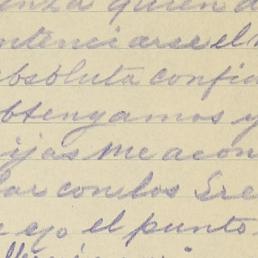 enza quien
tenciarse el
absoluta confi
btengamos y
ijas me acon
lar con los Sre
ejo el punto